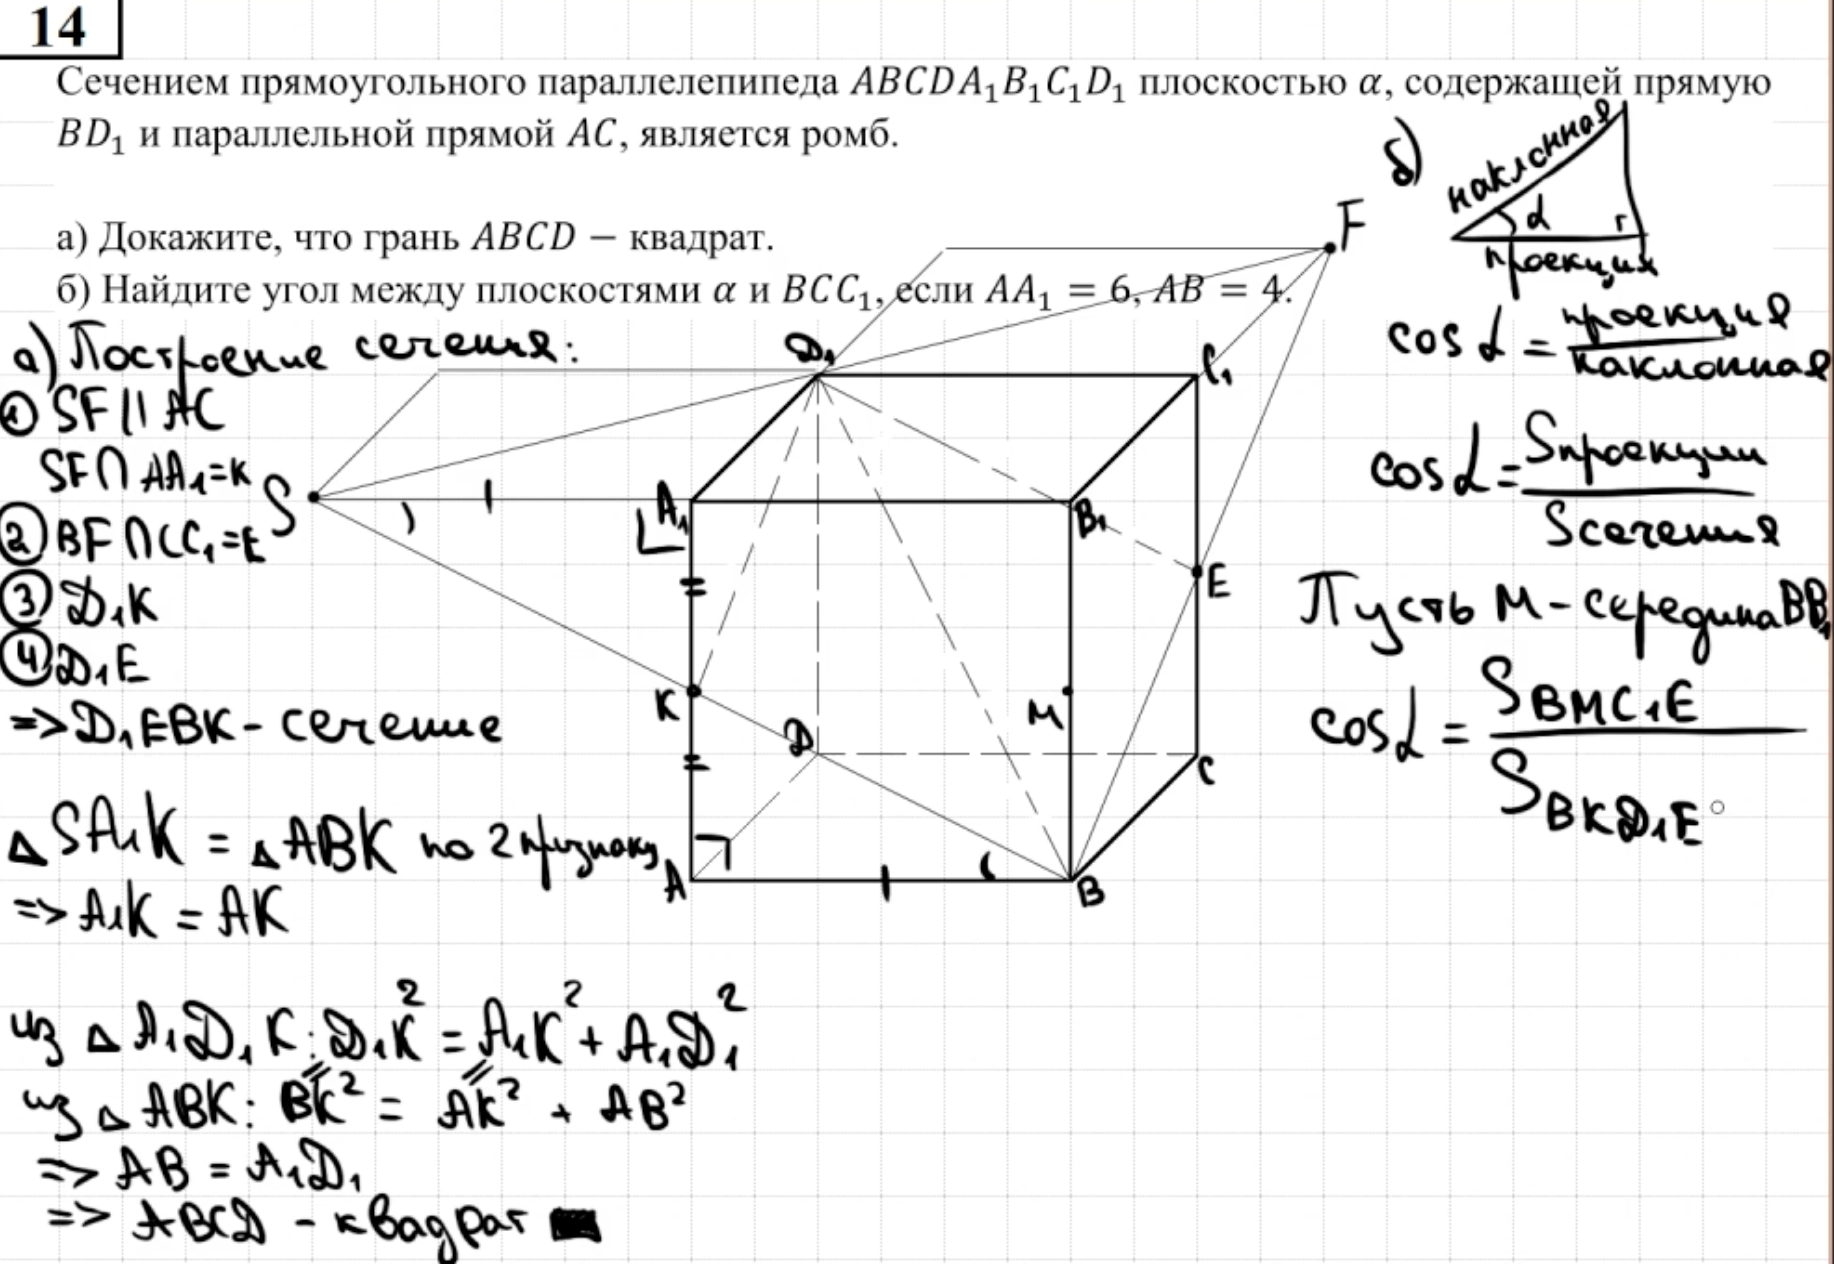 14
Сечением прямоугольного параллелепипеда ABCDA₁B₁C₁D₁ плоскостью α, содержащей прямую
BD₁ и параллельной прямой AC, является ромб.
а) Докажите, что грань ABCD − квадрат.
б) Найдите угол между плоскостями α и BCC₁, если AA₁ = 6, AB = 4.
а) Построение сечения:
① SF || AC
SF ∩ AA₁ = K
② BF ∩ CC₁ = E
③ D₁K
④ D₁E
=> D₁EBK - сечение
△SA₁K = △ABK по 2 признаку
=> A₁K = AK
из △A₁D₁K: D₁K² = A₁K² + A₁D₁²
из △ABK: BK² = AK² + AB²
=> AB = A₁D₁
=> ABCD - квадрат
S
F
D₁
C₁
A₁
B₁
E
K
M
D
C
A
B
б)
наклонная
α
проекция
cos α = проекция / наклонная
cos α = Sпроекции / Sсечения
Пусть M - середина BB₁
cos α = S BMC₁E / S BKD₁E